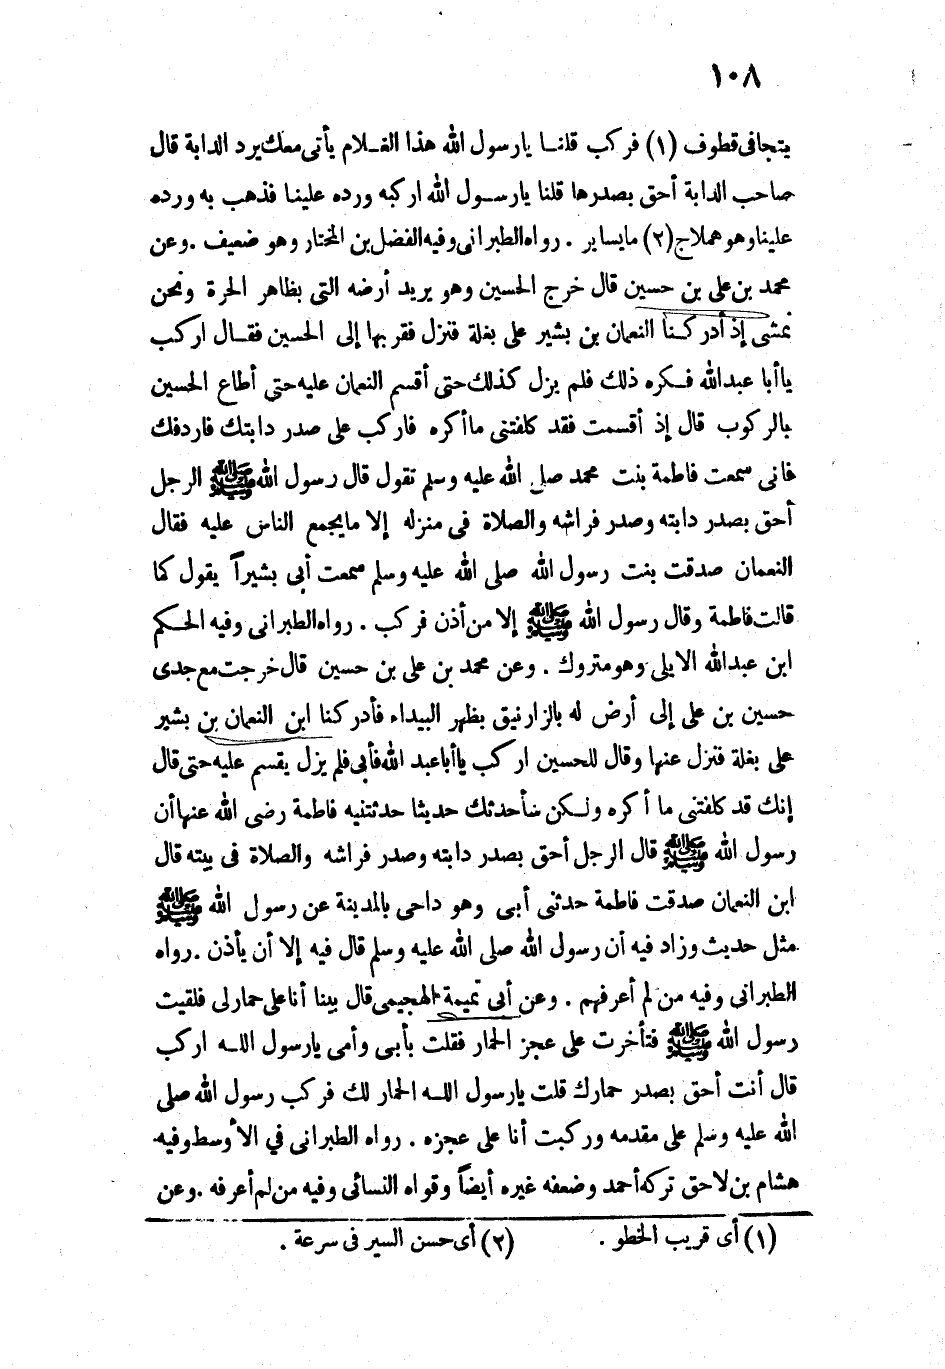 ١٠٨
يتجافى قطوف (١) فركب قلنا يارسول الله هذا الغلام يأتى معك يرد الدابة قال
صاحب الدابة أحق بصدرها قلنا يارسول الله اركبه ورده علينا فذهب به ورده
علينا وهو هملاج (٢) مايساير . رواه الطبرانى وفيه الفضل بن المختار وهو ضعيف . وعن
محمد بن على بن حسين قال خرج الحسين وهو يريد أرضه التى بظاهر الحرة ونحن
نمشى إذ أدركنا النعمان بن بشير على بغلة فنزل فقربها إلى الحسين فقال اركب
ياأبا عبدالله فكره ذلك فلم يزل كذلك حتى أقسم النعمان عليه حتى أطاع الحسين
بالركوب قال إذ أقسمت فقد كلفتنى ماأكره فاركب على صدر دابتك فاردفك
فانى سمعت فاطمة بنت محمد صلى الله عليه وسلم تقول قال رسول الله ﷺ الرجل
أحق بصدر دابته وصدر فراشه والصلاة فى منزله إلا مايجمع الناس عليه فقال
النعمان صدقت بنت رسول الله صلى الله عليه وسلم سمعت أبى بشيراً يقول كما
قالت فاطمة وقال رسول الله ﷺ إلا من أذن فركب . رواه الطبرانى وفيه الحكم
ابن عبدالله الايلى وهو متروك . وعن محمد بن على بن حسين قال خرجت مع جدى
حسين بن على إلى أرض له بالزارنيق بظهر البيداء فأدركنا ابن النعمان بن بشير
على بغلة فنزل عنها وقال للحسين اركب ياأبا عبد الله فأبى فلم يزل يقسم عليه حتى قال
إنك قد كلفتنى ما أكره ولكن سأحدثك حديثا حدثتنيه فاطمة رضى الله عنها أن
رسول الله ﷺ قال الرجل أحق بصدر دابته وصدر فراشه والصلاة فى بيته قال
ابن النعمان صدقت فاطمة حدثنى أبى وهو داحى بالمدينة عن رسول الله ﷺ
مثل حديث وزاد فيه أن رسول الله صلى الله عليه وسلم قال فيه إلا أن يأذن . رواه
الطبرانى وفيه من لم أعرفهم . وعن أبى تميمة الهجيمى قال بينا أنا على حمار لى فلقيت
رسول الله ﷺ فتأخرت على عجز الحمار فقلت بأبى وأمى يارسول الله اركب
قال أنت أحق بصدر حمارك قلت يارسول الله الحمار لك فركب رسول الله صلى
الله عليه وسلم على مقدمه وركبت أنا على عجزه . رواه الطبرانى في الأوسط وفيه
هشام بن لاحق تركه أحمد وضعفه غيره أيضاً وقواه النسائى وفيه من لم أعرفه . وعن
(١) أى قريب الخطو . (٢) أى حسن السير فى سرعة .